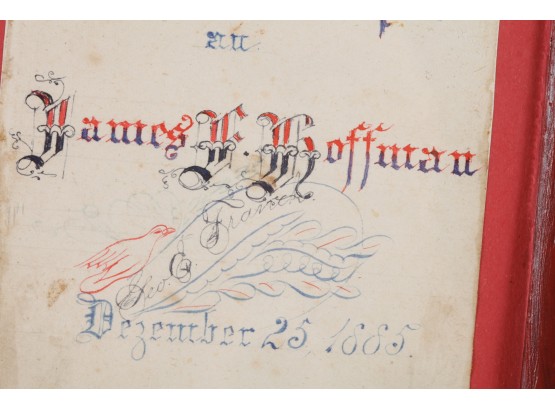 an
James F. Hoffman
Geo. G.
Dezember 25, 1885.